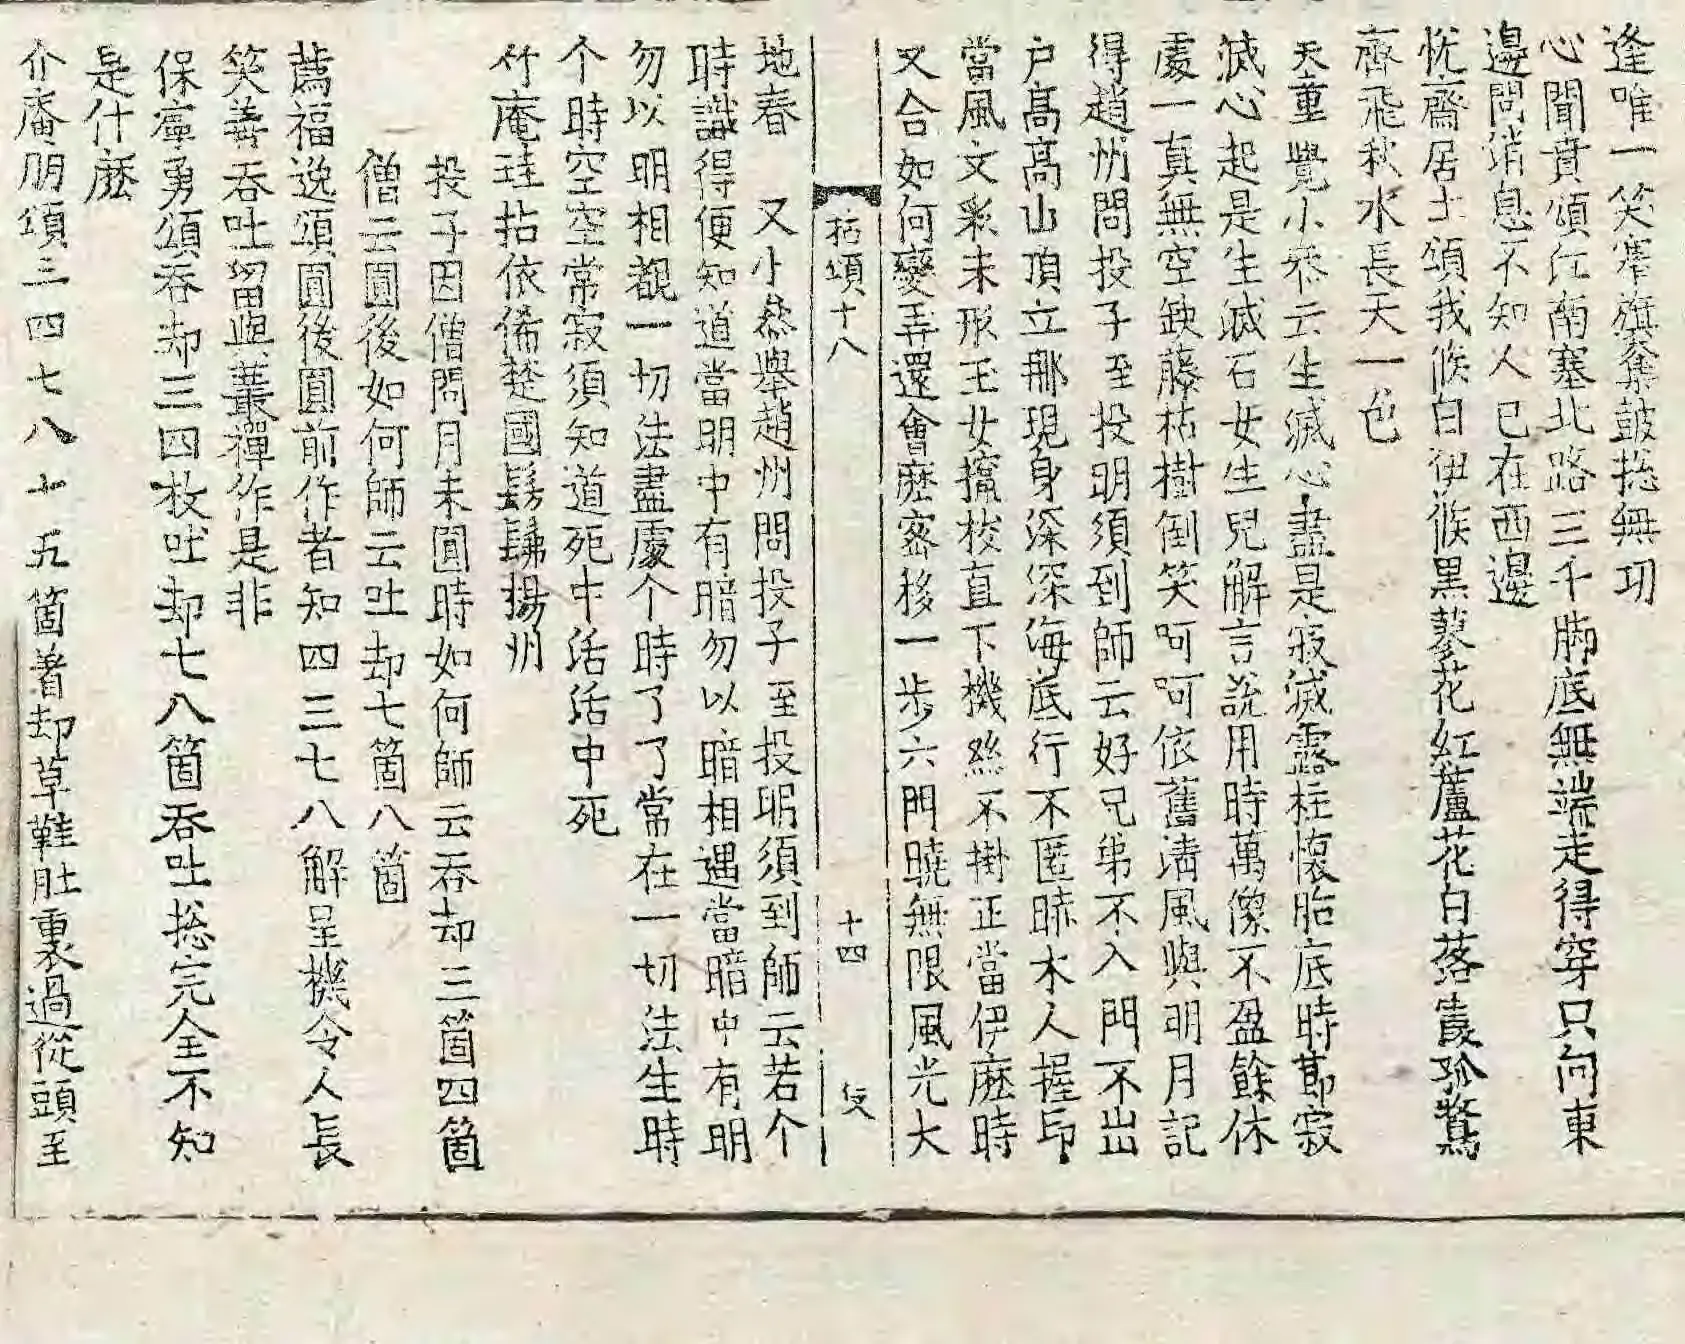 逢唯一笑搴旗奪鼓捴無功
心聞賁頌江南塞北路三千脚底無端走得穿只向東
邊問消息不知人已在西邊
忧齋居士頌我𠊱白伊𠊱黑蓼花紅蘆花白落霞孤鶩
齊飛秋水長天一色
天童覺小叅云生滅心盡是寂滅露柱懷胎底時莭寂
滅心起是生滅石女生兒解言說用時萬像不盈餘休
處一真無空缺藤枯樹倒笑呵呵依舊淸風與明月記
得趙州問投子至投明須到師云好兄弟不入門不出
户髙髙山頂立那現身深深海底行不匿跡木人握印
當風文彩未形玉女攛梭直下機絲不掛正當伊麽時
又合如何變弄還會麽密移一步六門曉無限風光大
拈頌十八 十四
地春 又小叅舉趙州問投子至投明須到師云若个
時識得便知道當明中有暗勿以暗相遇當暗中有明
勿以明相覩一切法盡處个時了了常在一切法生時
个時空空常寂須知道死中活活中死
竹庵珪拈依俙楚國髣髴揚州
投子因僧問月未圓時如何師云吞却三箇四箇
僧云圓後如何師云吐却七箇八箇
薦福逸頌圓後圓前作者知四三七八解呈機令人長
笑善吞吐留與叢禪作是非
保寧勇頌吞却三四枚吐却七八箇吞吐捴完全不知
是什麽
介庵朋頌三四七八十五箇著却草鞋肚裏過從頭至